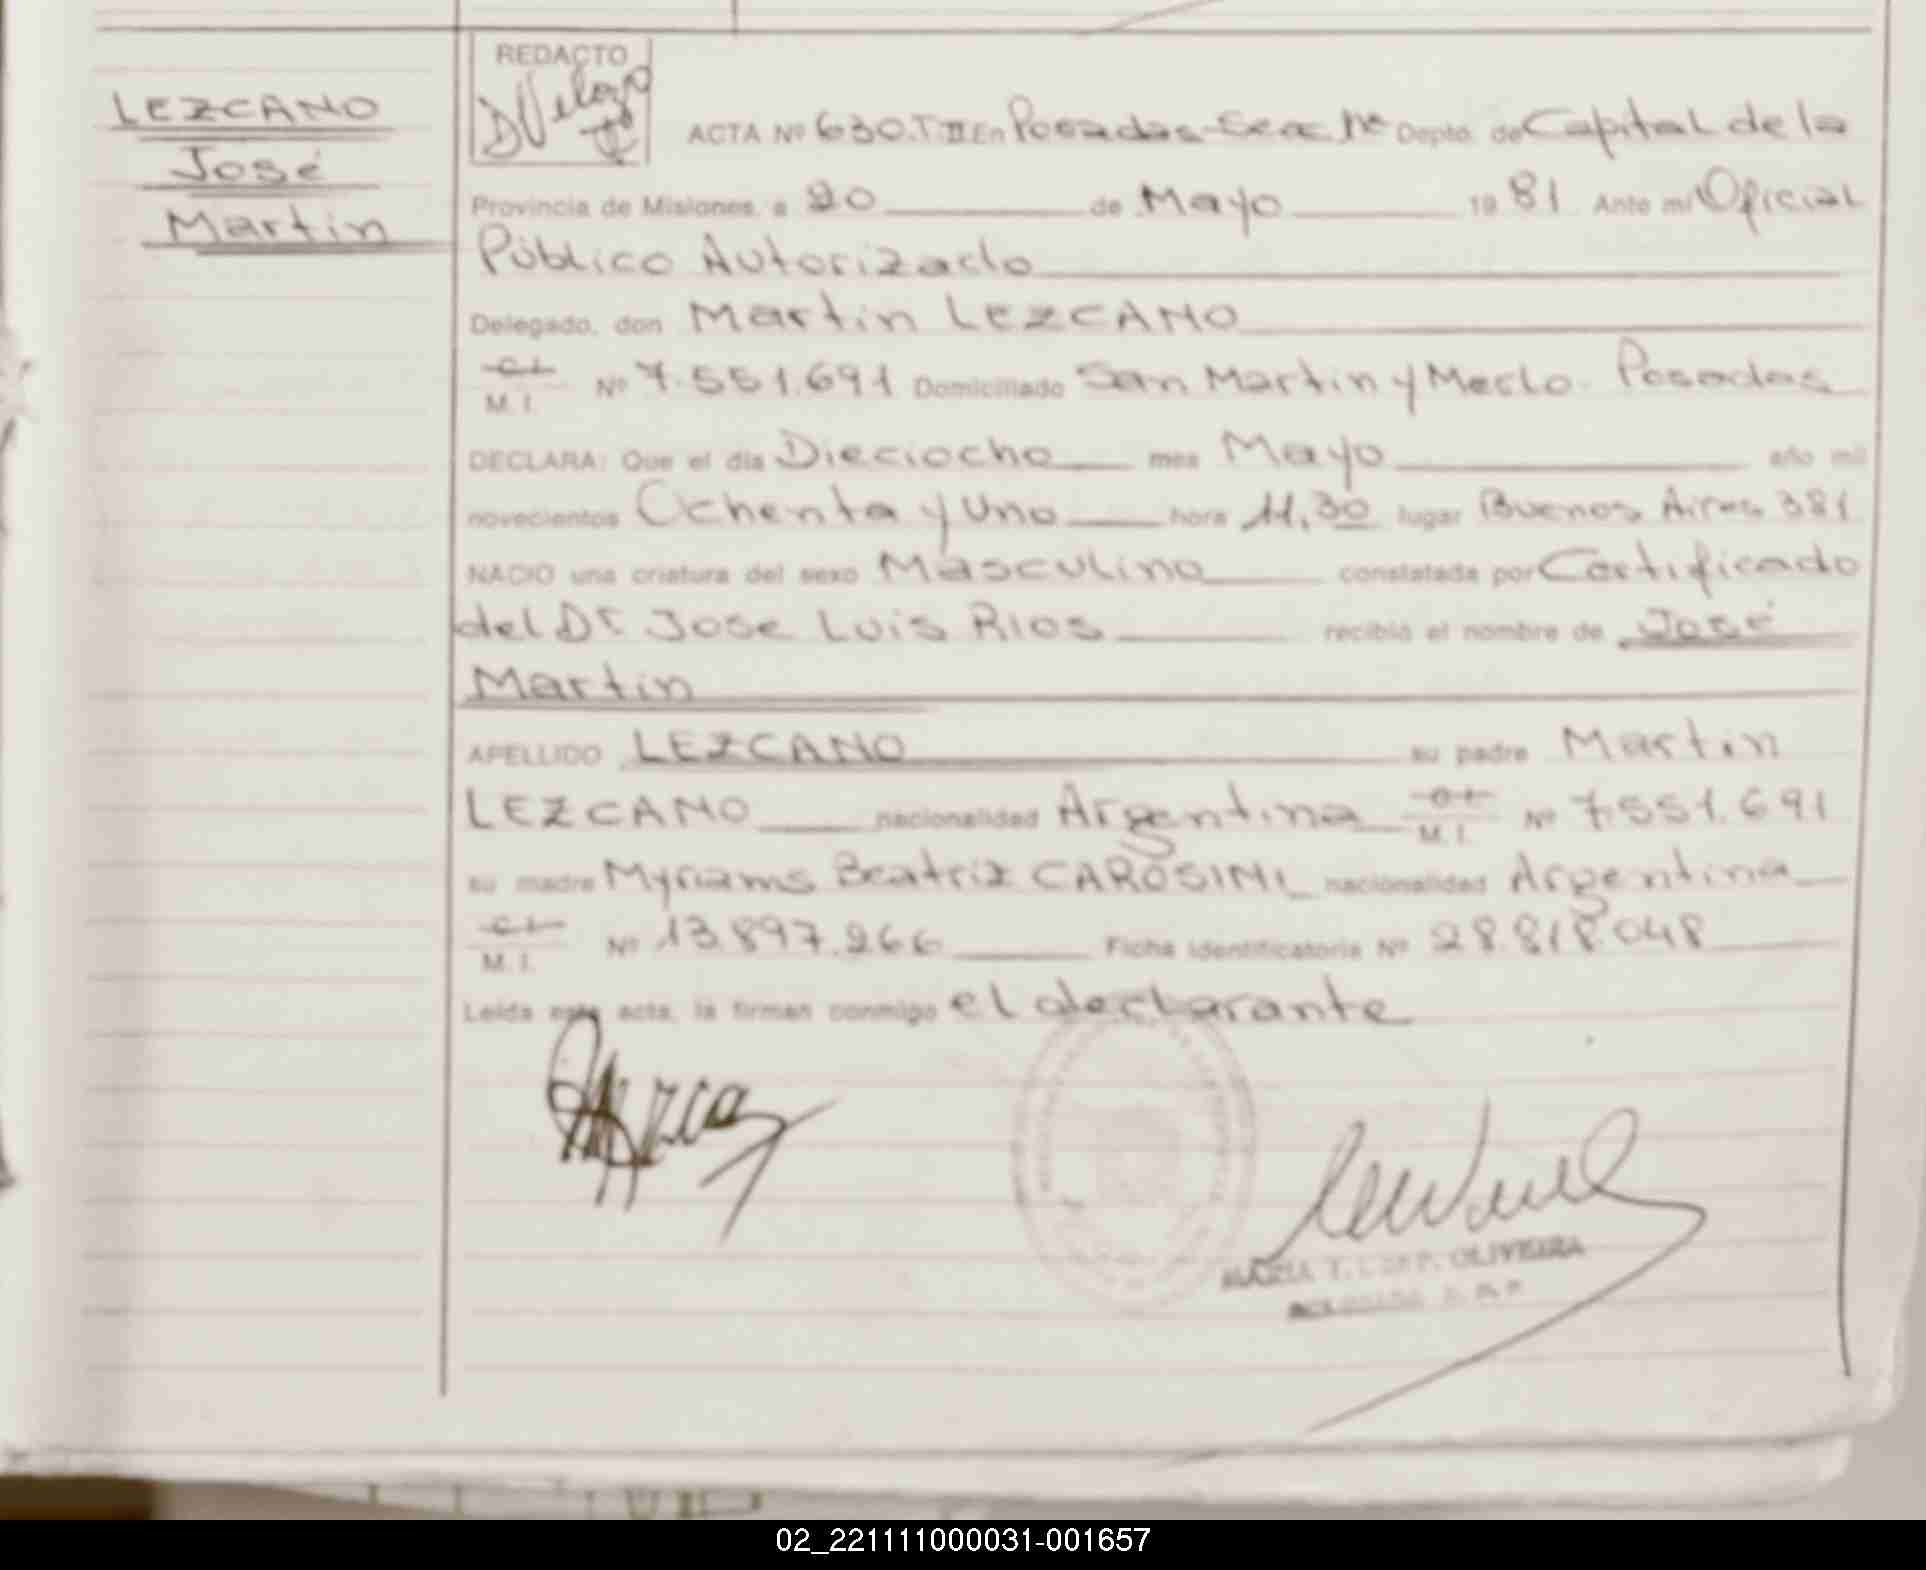 LEZCANO
José
Martin
REDACTO
ACTA Nº 630.T.II En Posadas Secc 1ª Depto. de Capital de la
Provincia de Misiones, a 20 de Mayo 19 81 Ante mí Oficial
Público Autorizado
Delegado, don Martin LEZCANO
C.I. M. I. Nº 7.551.691 Domiciliado San Martin y Merlo. Posadas
DECLARA: Que el día Dieciocho mes Mayo año mil
novecientos Ochenta y Uno hora 11,30 lugar Buenos Aires 381
NACIO una criatura del sexo Masculino constatada por Certificado
del Dr. Jose Luis Rios recibió el nombre de José
Martin
APELLIDO LEZCANO su padre Martin
LEZCANO nacionalidad Argentina M. I. Nº 7.551.691
su madre Myriams Beatriz CAROSINI nacionalidad Argentina
C.I. M. I. Nº 13.897.266 Ficha Identificatoria Nº 28.818.048
Leída este acta, la firman conmigo el declarante
MARIA T. OLIVEIRA
02_221111000031-001657